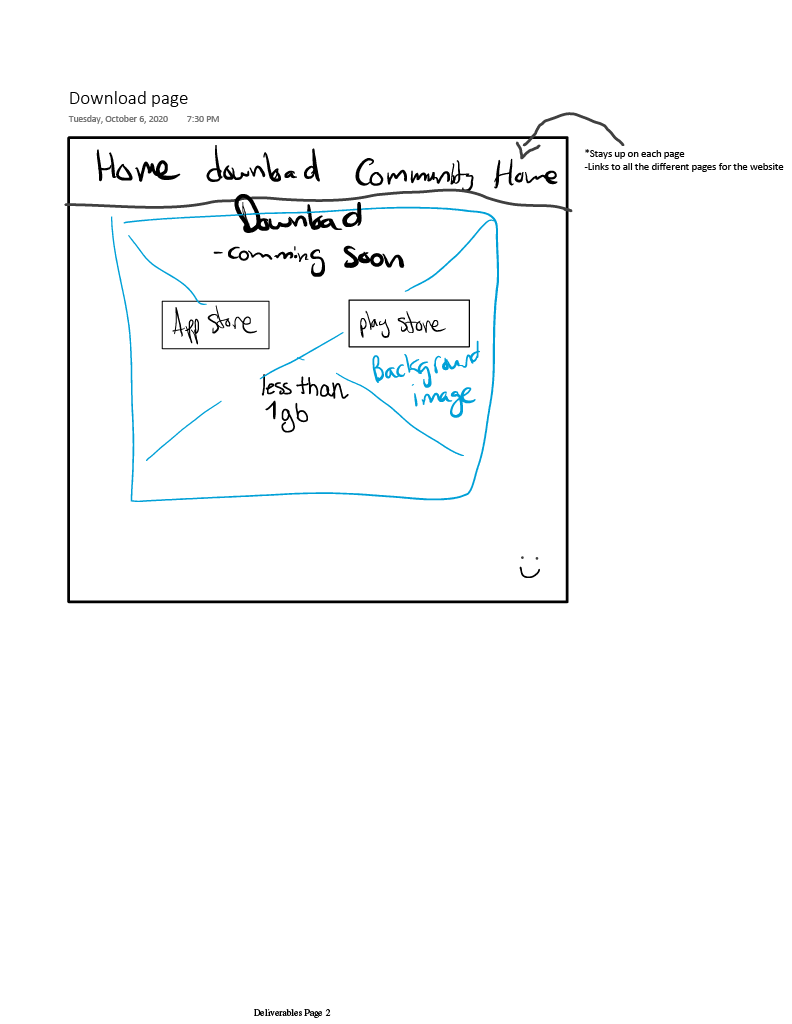 Download page
Tuesday, October 6, 2020 7:30 PM
Home download Community Home
*Stays up on each page
-Links to all the different pages for the website
Download
-comming soon
App store
play store
Background
image
less than
1gb
Deliverables Page 2